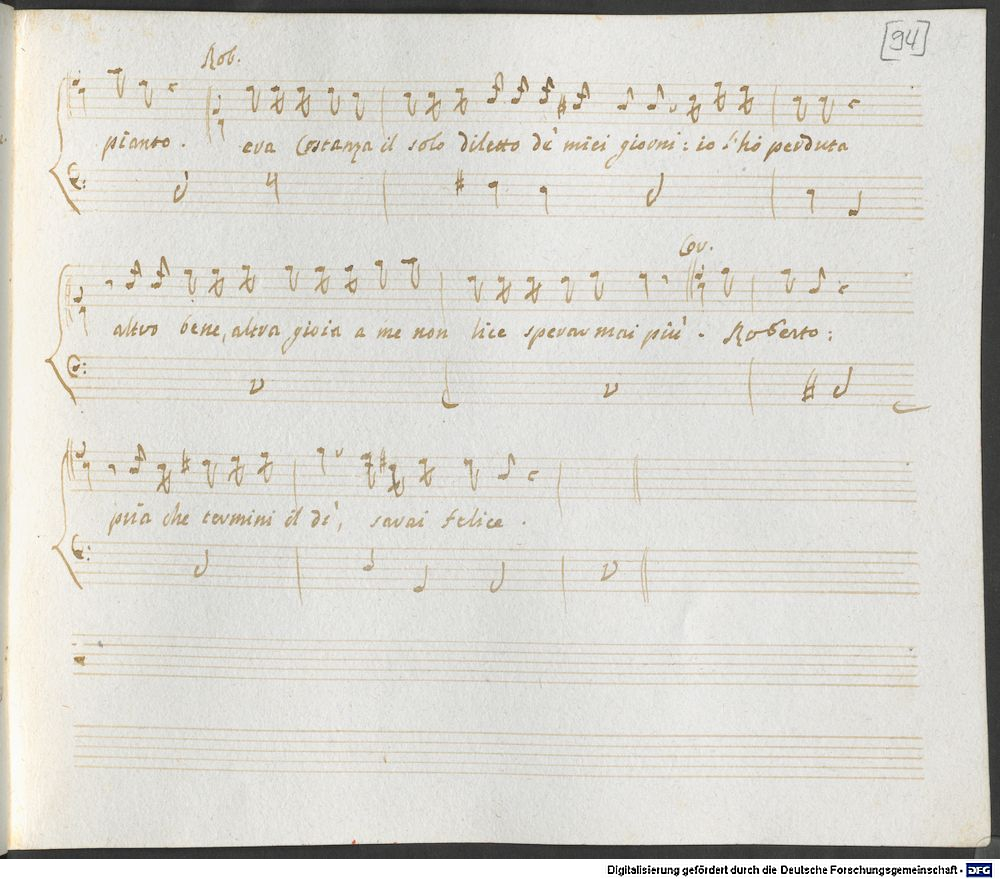 [94]
Rob.
pianto. era Costanza il solo diletto de' miei giorni: io l'hò perduta
Cov.
altro bene, altra gioia a me non lice sperar mai più. Roberto:
pria che termini il dì, sarai felice.
Digitalisierung gefördert durch die Deutsche Forschungsgemeinschaft - DFG